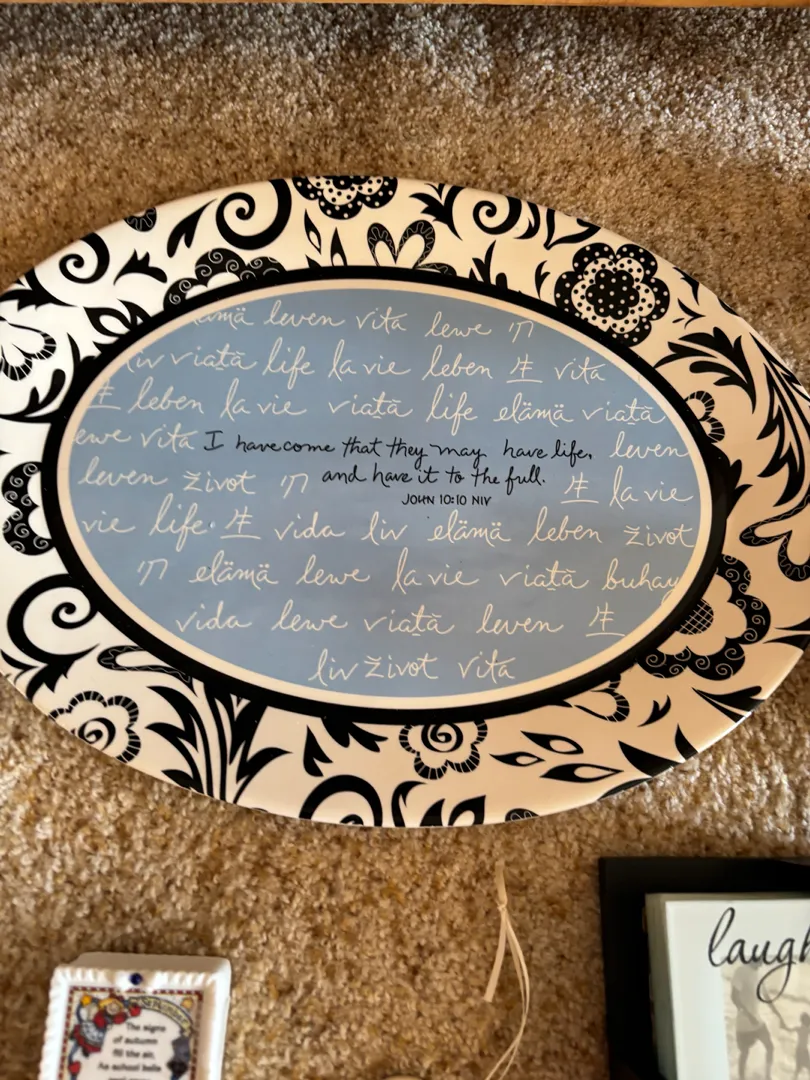 elämä leven vita lewe חי
liv viaţă life la vie leben 生 vita
生 leben la vie viaţă life elämä viaţă
lewe vita I have come that they may have life, leven
leven život חי and have it to the full. 生 la vie
JOHN 10:10 NIV
vie life 生 vida liv elämä leben život
חי elämä lewe la vie viaţă buhay
vida lewe viaţă leven 生
liv život vita
laugh
September
The signs
of autumn
fill the air,
As school bells